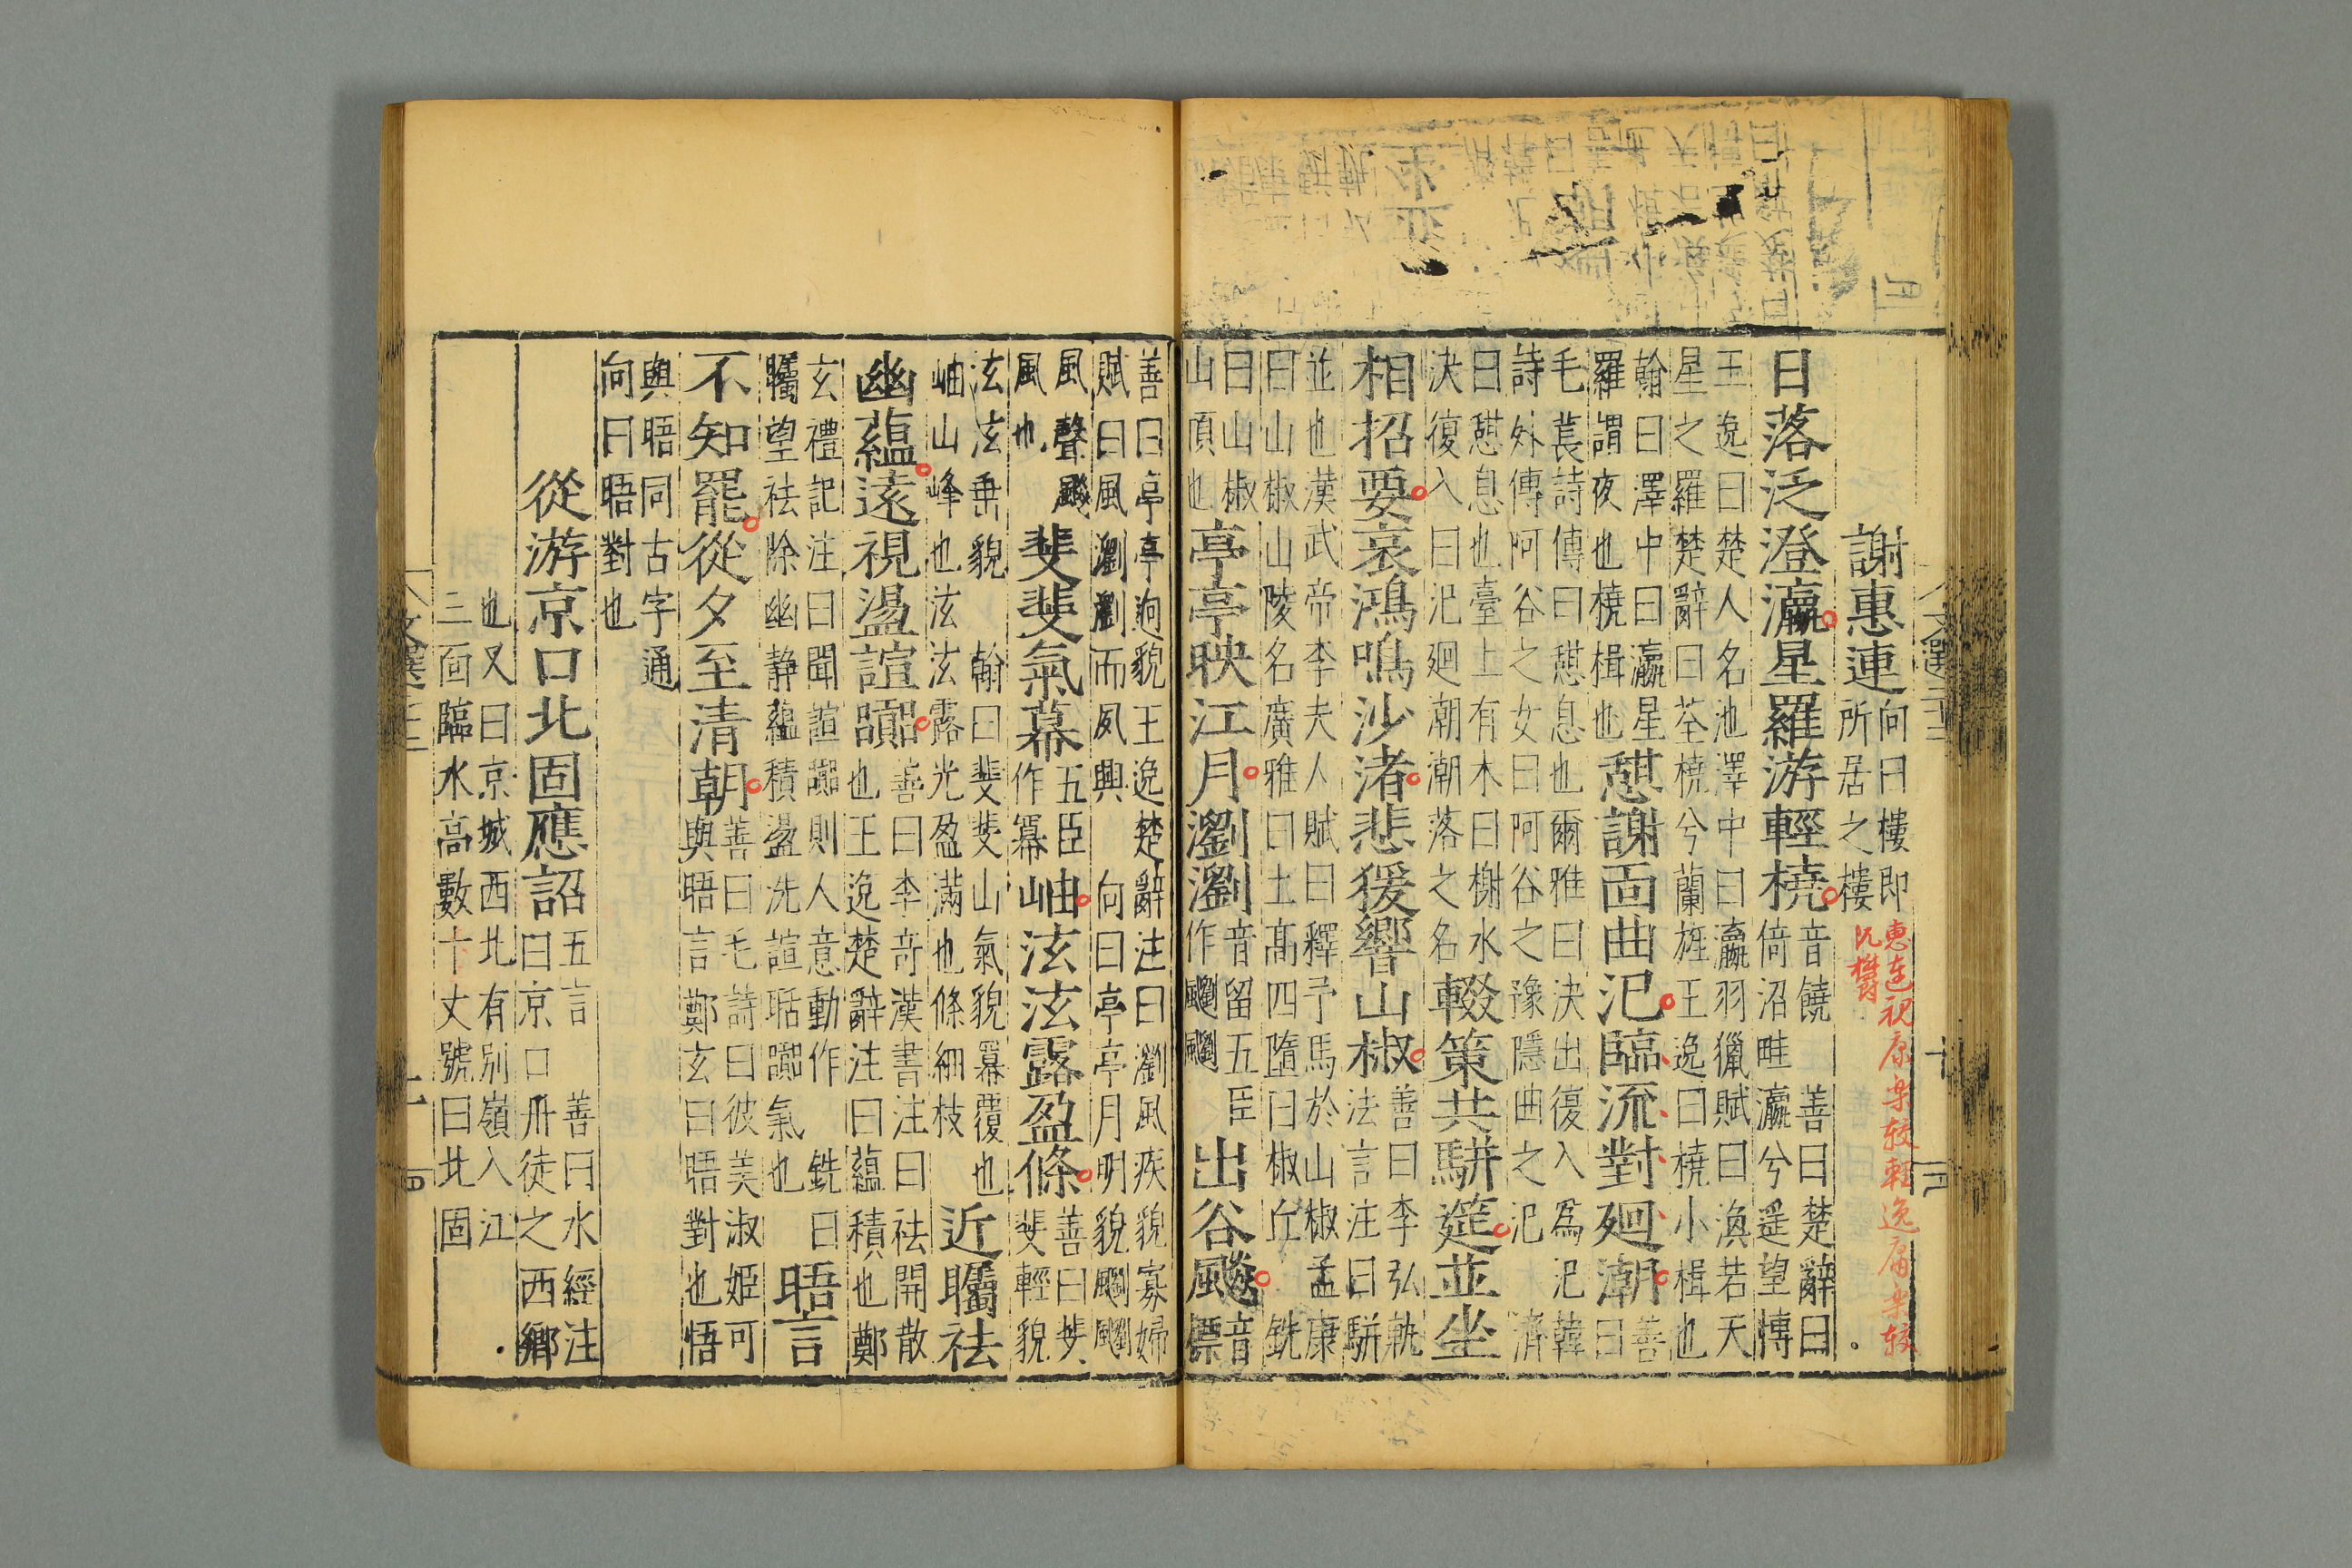 謝惠連向曰樓即所居之樓惠連視康樂較輕逸康樂較沉鬱
日落泛澄瀛星羅游輕橈音饒善曰楚辭曰倚沼畦瀛兮遥望博
王逸曰楚人名池澤中曰瀛羽獵賦曰渙若天星之羅楚辭曰荃橈兮蘭旌王逸曰橈小楫也
翰曰澤中曰瀛星羅謂夜也橈楫也憇謝面曲汜臨流對廻潮善曰
毛萇詩傳曰憇息也爾雅曰決出復入爲汜韓詩外傳阿谷之女曰阿谷之豫隱曲之汜濟
曰憇息也臺上有木曰榭水決復入曰汜廻潮潮落之名輟策共駢筵並坐
相招要哀鴻鳴沙渚悲猨響山椒善曰李弘軌法言注曰駢
並也漢武帝李夫人賦曰釋予馬於山椒孟康曰山椒山陵名廣雅曰土髙四隋曰椒丘銑
曰山椒山頂也亭亭映江月瀏瀏音留五臣作飀飀出谷飈音標
善曰亭亭逈貌王逸楚辭注曰瀏風疾貌寡婦賦曰風瀏瀏而夙興向曰亭亭月明貌飀飀
風聲飈風也斐斐氣幕五臣作羃岫泫泫露盈條善曰斐斐輕貌
泫泫垂貌翰曰斐斐山氣貌羃覆也岫山峰也泫泫露光盈滿也條細枝近矚袪
幽藴遠視盪諠囂善曰李奇漢書注曰袪開散也王逸楚辭注曰藴積也鄭
玄禮記注曰聞諠囂則人意動作銑曰矚望袪除幽静藴積盪洗諠聒囂氣也晤言
不知罷從夕至清朝善曰毛詩曰彼美淑姬可與晤言鄭玄曰晤對也悟
與晤同古字通向曰晤對也
從游京口北固應詔五言善曰水經注曰京口丹徒之西鄉
也又曰京城西北有別嶺入江三面臨水高數十丈號曰北固